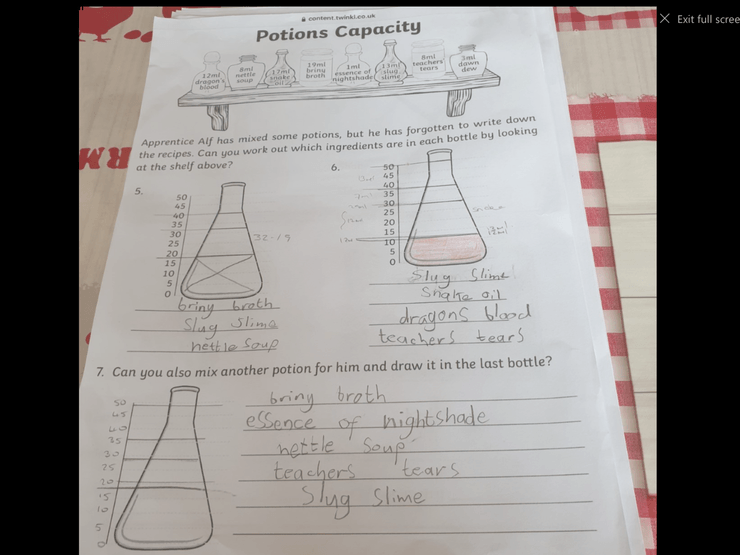 Exit full scree
content.twinkl.co.uk
Potions Capacity
12ml dragon's blood
8ml nettle soup
17ml snake oil
19ml briny broth
1ml essence of nightshade
13ml slug slime
8ml teachers tears
3ml dawn dew
Apprentice Alf has mixed some potions, but he has forgotten to write down
the recipes. Can you work out which ingredients are in each bottle by looking
at the shelf above?
5.
50
45
40
35
30
25
20
15
10
5
0
32-19
briny broth
Slug Slime
nettle Soup
6.
50
45
40
35
30
25
20
15
10
5
0
Slug Slime
Snake oil
dragons blood
teachers tears
7. Can you also mix another potion for him and draw it in the last bottle?
50
45
40
35
30
25
20
15
10
5
0
briny broth
essence of nightshade
nettle Soup
teachers tears
Slug Slime